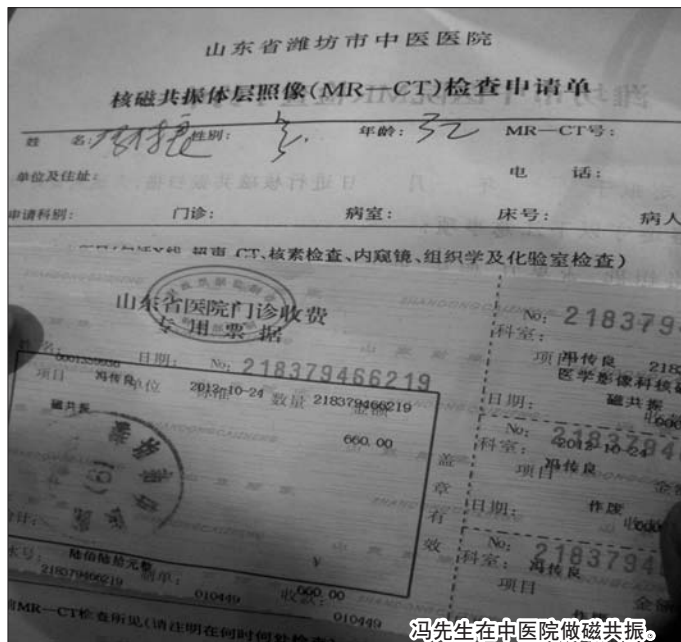 山东省潍坊市中医医院
核磁共振体层照像(MR—CT)检查申请单
姓 名: 性别: 年龄: MR—CT号:
单位及住址: 电 话:
申请科别: 门诊: 病室: 床号: 病人
超声、CT、核素检查、内窥镜、组织学及化验室检查)
山东省医院门诊收费
专用票据
姓名: 日期: No: 218379466219
0001339936
项目 冯传良 单位 2012-10-24 数量 218379466219 金额
磁共振 660.00
合计: 陆佰陆拾元整 ¥ 660.00
218379466219 制单: 010449 收款: 010449
盖章有效
No: 2183794
科室:
项目 冯传良 2183
医学影像科核磁
日期: 磁共振
No: 2183794
科室: 2012-10-24
项目 冯传良 金额
日期: 作废 收
No: 2183794
科室: 冯传良
项目 金额
作废
前MR—CT检查所见(请注明在何时何处检查)
冯先生在中医院做磁共振。